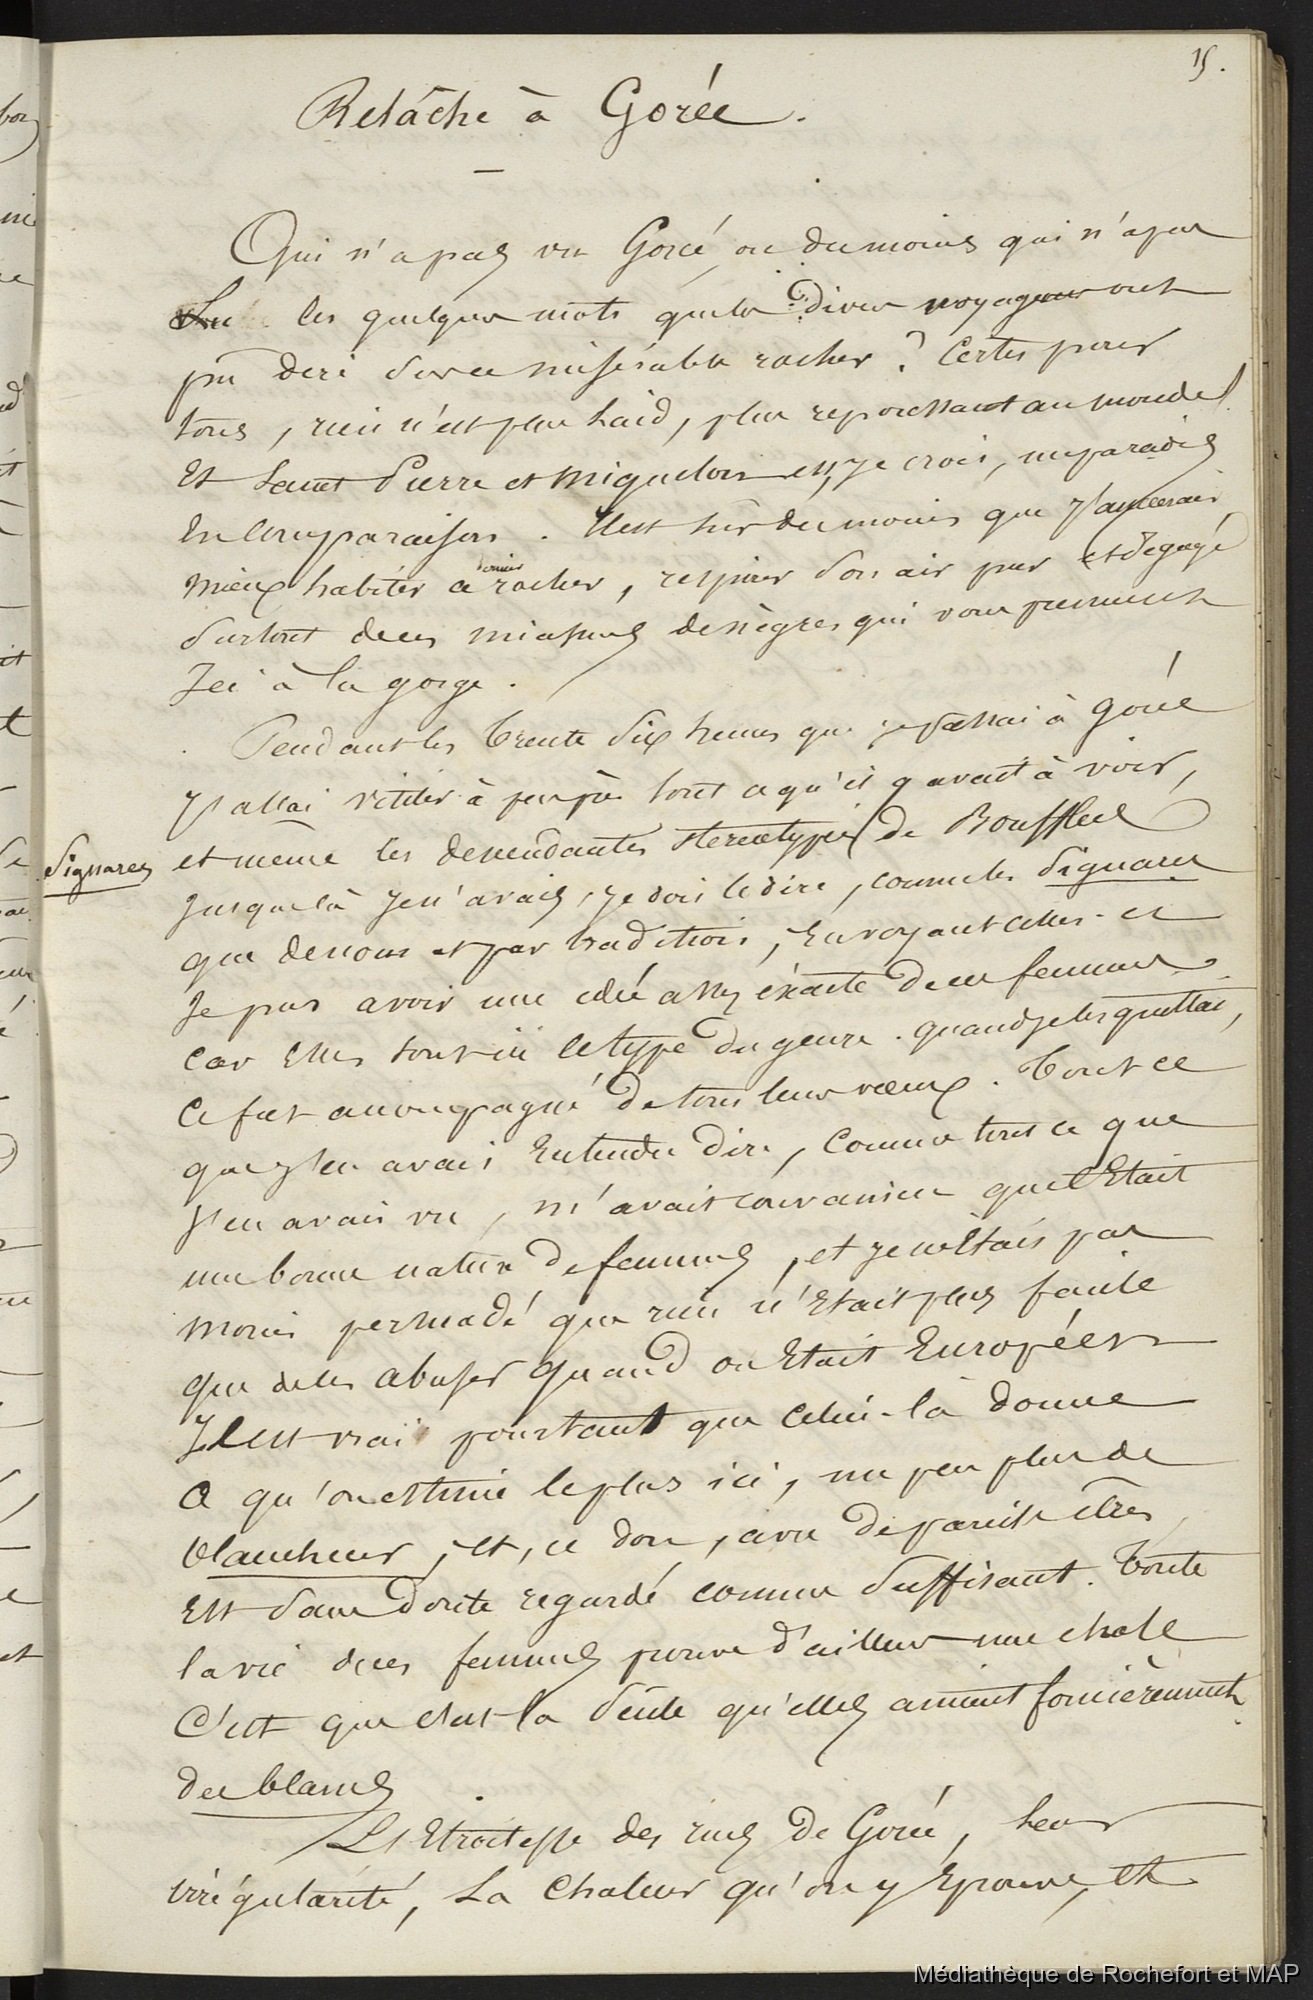 15.
Relâche à Gorée.
Qui n'a pas vu Gorée, ou du moins qui n'a pas
Lu les quelques mots que les divers voyageurs ont
pu dire sur ce misérable rocher ? Certes pour
tous, rien n'est plus laid, plus repoussant au monde !
Et Saint Pierre et Miquelon est, je crois, un paradis
En Comparaison. Il est sûr du moins que j'aimerais
mieux habiter ce dernier rocher, respirer son air pur et dégagé
surtout de ces miasmes de nègres qui vous prennent
Ici à la gorge.
Pendant les Trente Six heures que je passai à Gorée
j'allai visiter à peu près tout ce qu'il y avait à voir,
et même les descendantes stéréotypées de Boufflers
Signares
Jusque là Je n'avais, je dois le dire, connu les Signares
que de nom et par tradition ; En voyant celles-ci
Je pus avoir une idée assez éxacte de ces femmes
Car Elles sont ici le type du genre. quand je les quittai,
Ce fut accompagné de tous leurs vœux. Tout ce
que j'en avais Entendu dire, Comme tout ce que
J'en avais vu, m'avait convaincu que c'Etait
une bonne nature de femmes, et je n'étais pas
moins persuadé que rien n'Etait plus facile
que de les abuser quand on Etait Européen
Il est vrai pourtant que celui-là donne
Ce qu'on estime le plus ici, un peu plus de
blancheur ; Et, ce don, avec de pareils êtres,
Est sans doute regardé comme suffisant. Toute
la vie de ces femmes prouve d'ailleurs une chose
C'est que c'est la seule qu'elles aiment foncièrement
des blancs
L'Etroitesse des rues de Gorée, leur
irrégularité, La Chaleur qu'on y Eprouve, et
Médiathèque de Rochefort et MAP